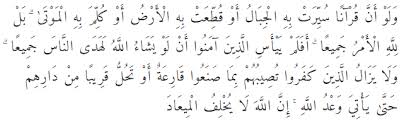 وَلَوْ أَنَّ قُرْآنًا سُيِّرَتْ بِهِ الْجِبَالُ أَوْ قُطِّعَتْ بِهِ الْأَرْضُ أَوْ كُلِّمَ بِهِ الْمَوْتَىٰ ۗ بَلْ
لِلَّهِ الْأَمْرُ جَمِيعًا ۗ أَفَلَمْ يَيْأَسِ الَّذِينَ آمَنُوا أَنْ لَوْ يَشَاءُ اللَّهُ لَهَدَى النَّاسَ جَمِيعًا ۗ
وَلَا يَزَالُ الَّذِينَ كَفَرُوا تُصِيبُهُمْ بِمَا صَنَعُوا قَارِعَةٌ أَوْ تَحُلُّ قَرِيبًا مِنْ دَارِهِمْ
حَتَّىٰ يَأْتِيَ وَعْدُ اللَّهِ ۚ إِنَّ اللَّهَ لَا يُخْلِفُ الْمِيعَادَ